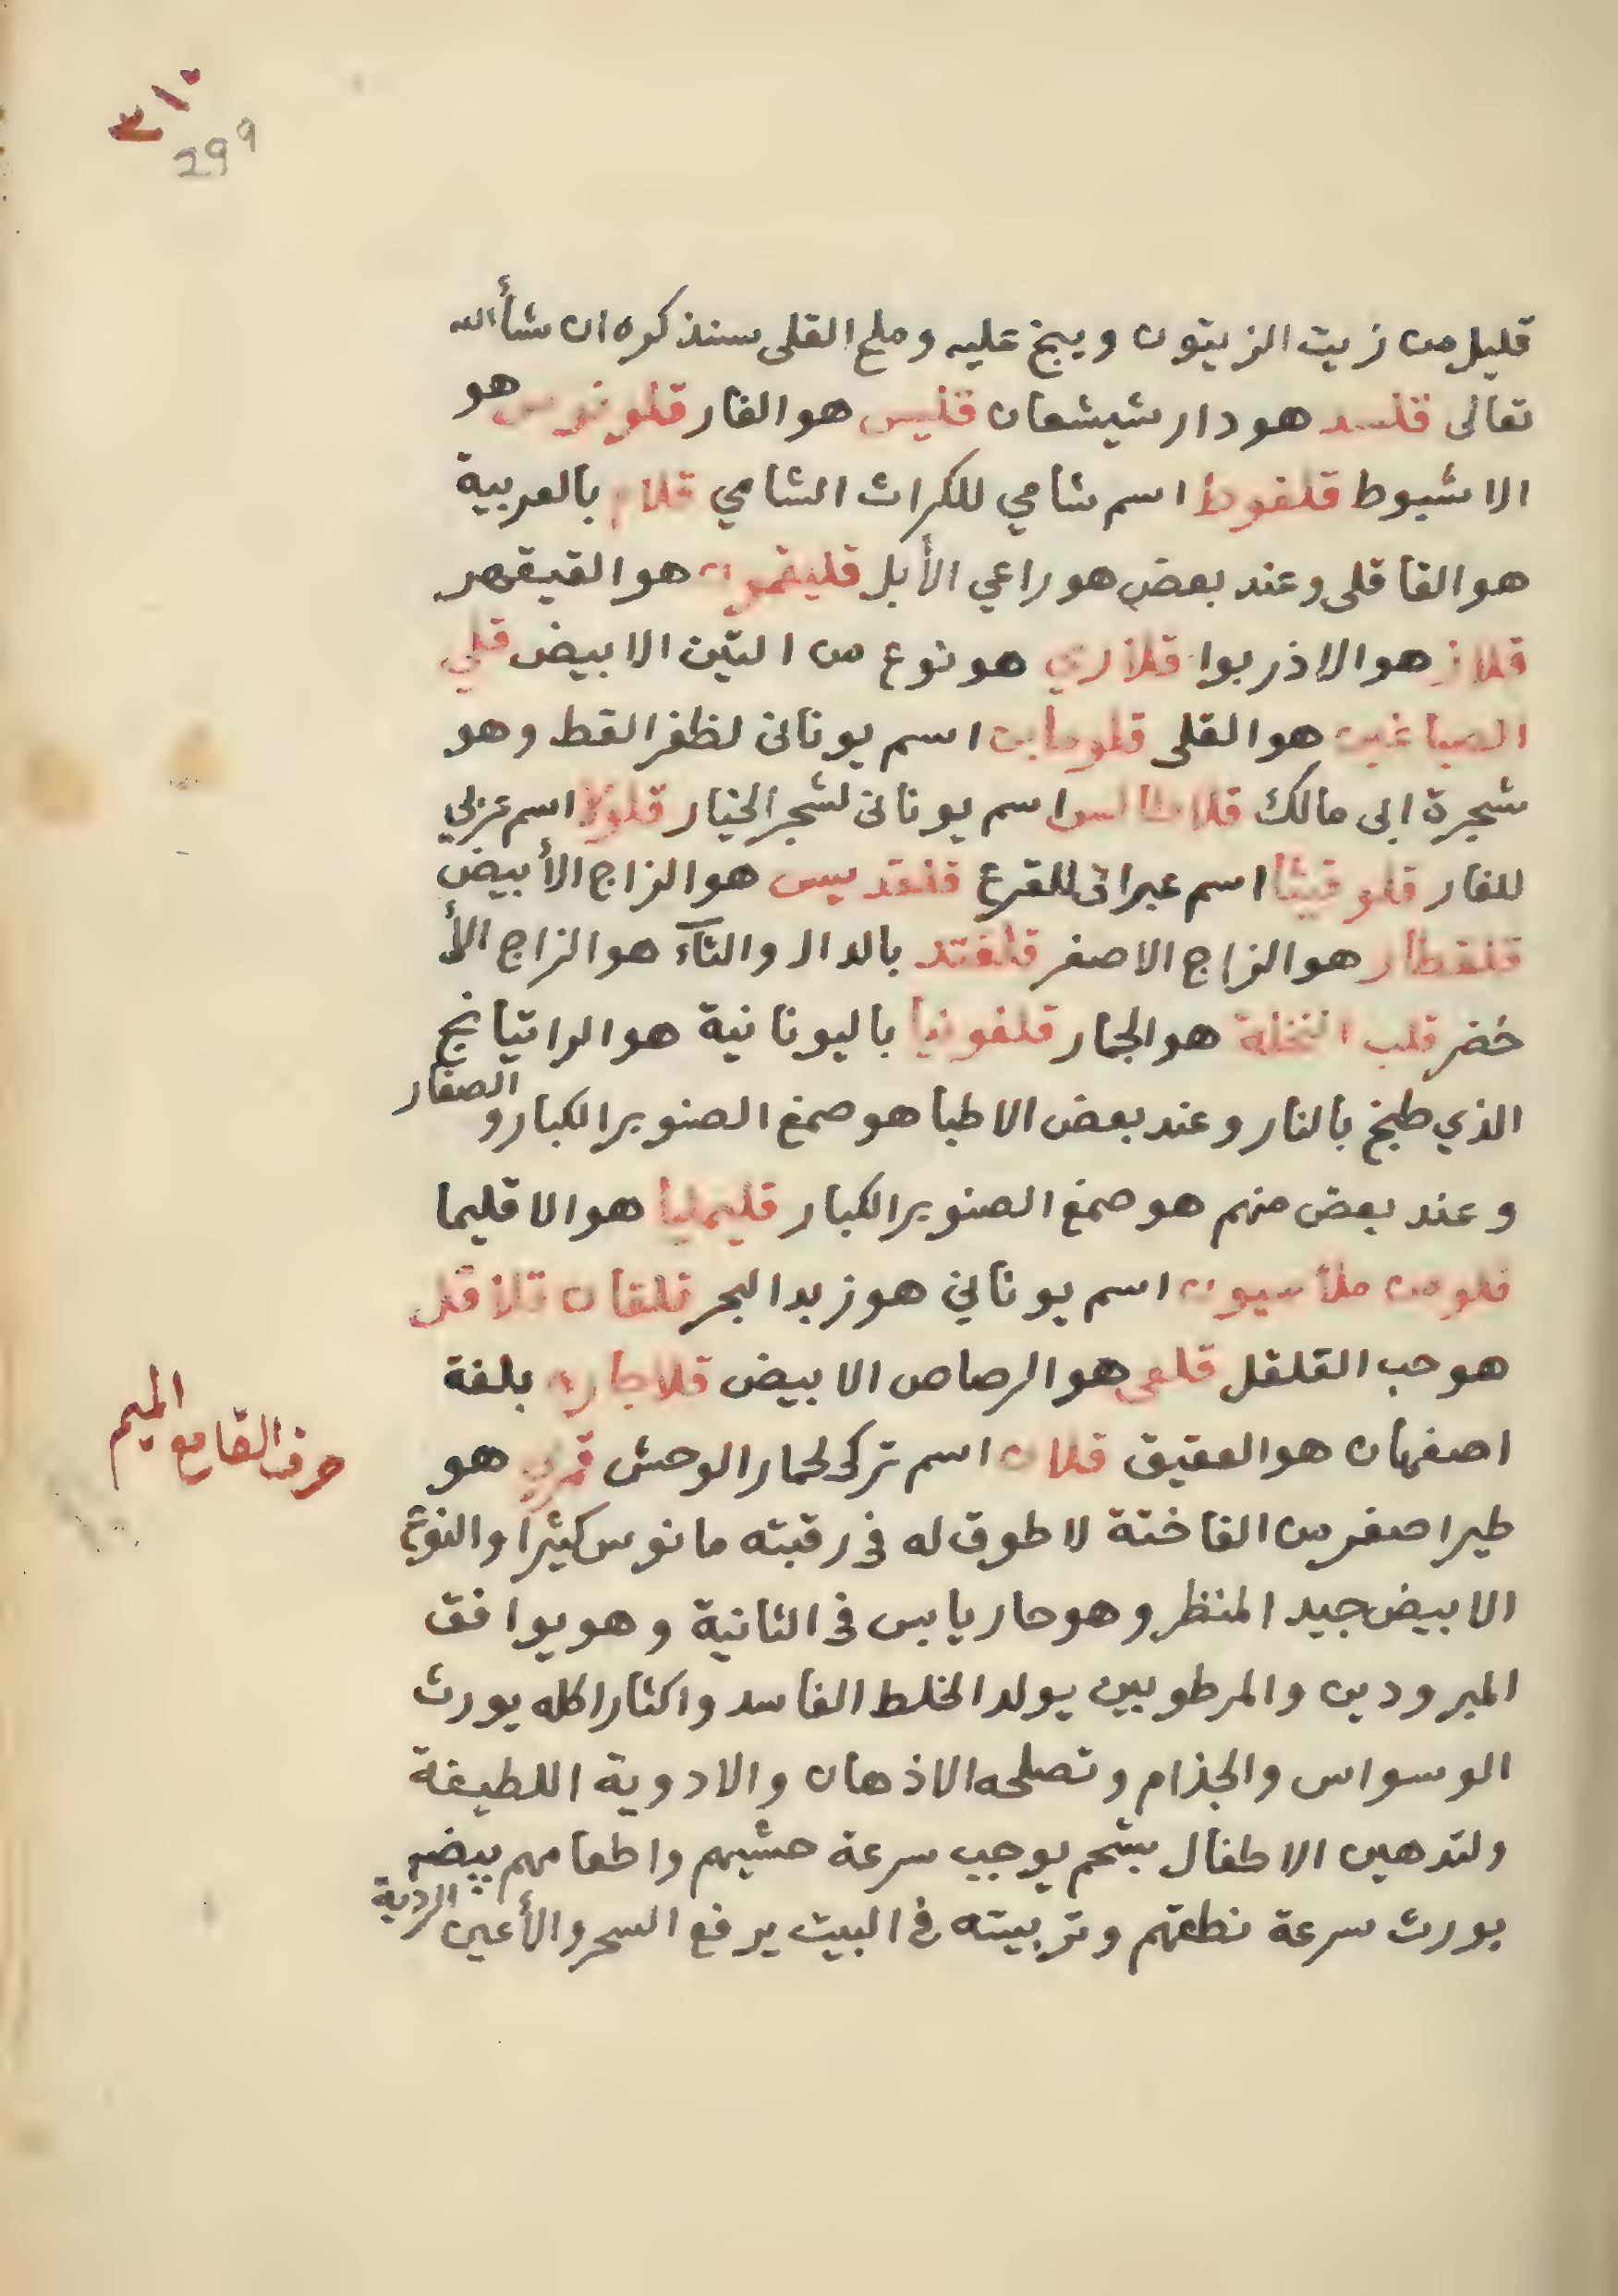 ٣١٠
299
قليل من زيت الزيتون ويبخ عليه وملح القلى سنذكره ان شأ الله
تعالى قلسد هو دار شيشعان قليس هو الفار هو
الاشبوط قلفوط اسم شامي للكراث الشامي قلام بالعربية
هو القاقلى وعند بعض هو راعي الأبل قليقمون هو القيقهر
قلاز هو الاذربوا قلازري هو نوع من التين الابيض قلي
الصباغين هو القلى قلوماين اسم يونانى لظفر القط وهو
شجرة ابى مالك اسم يونانى لشجر الخيار قلولا اسم عربي
للفار قلوقيثا اسم عبرانى للقرع قلقديس هو الزاج الأبيض
قلقطار هو الزاج الاصفر قلقتد بالدال والتآء هو الزاج الأ
خضر قلب النخلة هو الجمار قلفونيا باليونانية هو الراتيانج
الذي طبخ بالنار وعند بعض الاطبا هو صمغ الصنوبر الكبار و الصغار
وعند بعض منهم هو صمغ الصنوبر الكبار قليميا هو الاقليما
قلومن ملاسيون اسم يوناني هو زبد البحر قلقان قلاقل
هو حب القلقل قلعى هو الرصاص الابيض قلاجاره بلغة
اصفهان هو العقيق قلان اسم تركى لحمار الوحش قمري هو
حرف القا مع الميم
طير اصغر من الفاختة لا طوق له فى رقبته مانوس كثيرا والنوع
الابيض جيد المنظر وهو حار يابس فى الثانية وهو يوافق
المبرودين والمرطوبين يولد الخلط الفاسد واكثار اكله يورث
الوسواس والجذام وتصلحه الاذهان والادوية اللطيفة
ولتدهين الاطفال بشحم يوجب سرعة مشيهم واطعامهم بيضه
يورث سرعة نطقهم وتربيته فى البيت يرفع السحر والأعين الردية